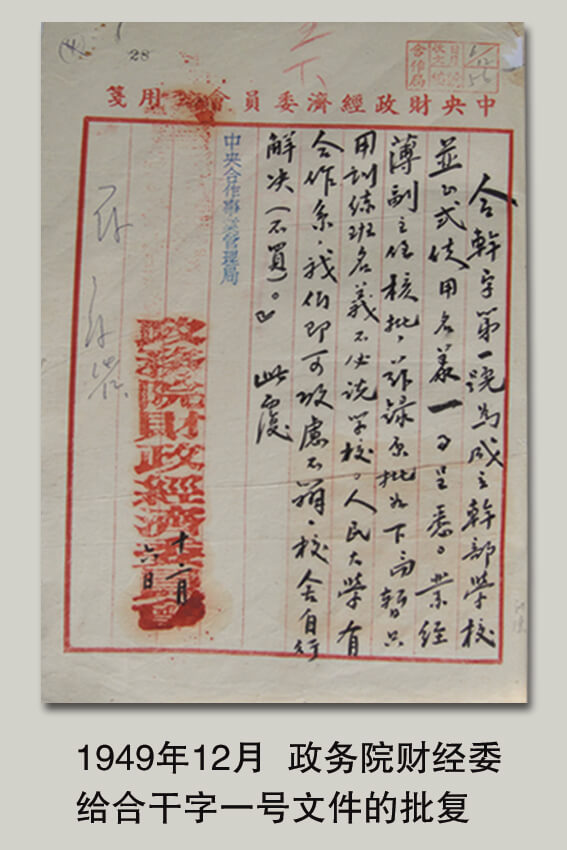 (4)
28
中央財政經濟委員會用箋
合幹字第一號為成立幹部學校
並正式使用名義一事呈悉。業經
薄副主任核批,茲錄原批如下「暫只
用訓練班名義不必說學校。人民大學有
合作系,我們即可攷慮不辦。校舍自行
解决(不買)。」 此覆
中央合作事業管理局
政務院財政經濟委員會
十二月
六日
1949年12月 政务院财经委
给合干字一号文件的批复